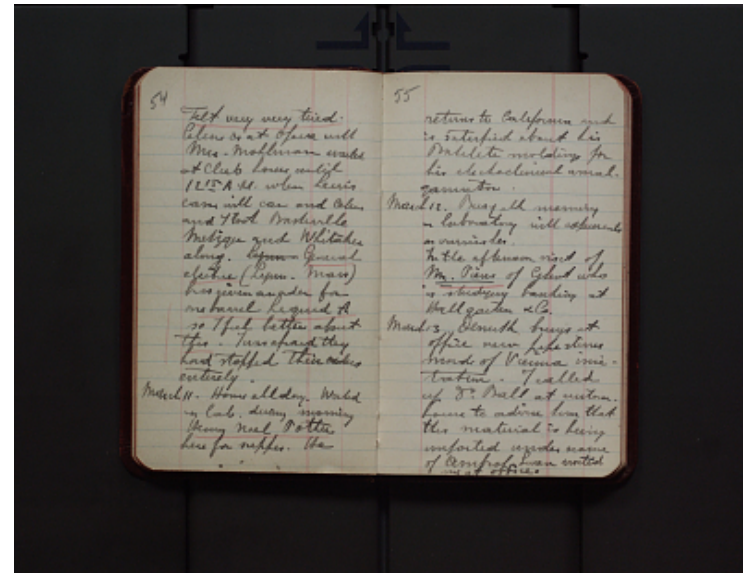 54
Felt very very tired.
Celine is at Opera with
Mrs. Mohlman waited
at Club house until
12 15 A.M. when Lewis
came with car and Celine
and
Metzger and Whitaker
along. Lynn General
electric (Lynn. Mass)
has given an order for
one barrel Liquid A
so I feel better about
this. I was afraid they
had stopped their orders
entirely.
March 11. Home all day. Worked
in Lab. during morning
Henry Neel Potter
here for supper. He
55
returns to California and
is satisfied about his
Bakelite moldings for
his electrochemical amal-
gamator.
March 12. Busy all morning
in laboratory with experiments
on varnishes.
In the afternoon visit of
Mr. of Ghent who
is studying banking at
Hallgarten & Co.
March 13. Demuth brings at
office new pipestems
made of Vienna imi-
tation. I called
up Dr. Ball at custom-
house to advise him that
this material is being
imported under name
of waited
me at office.